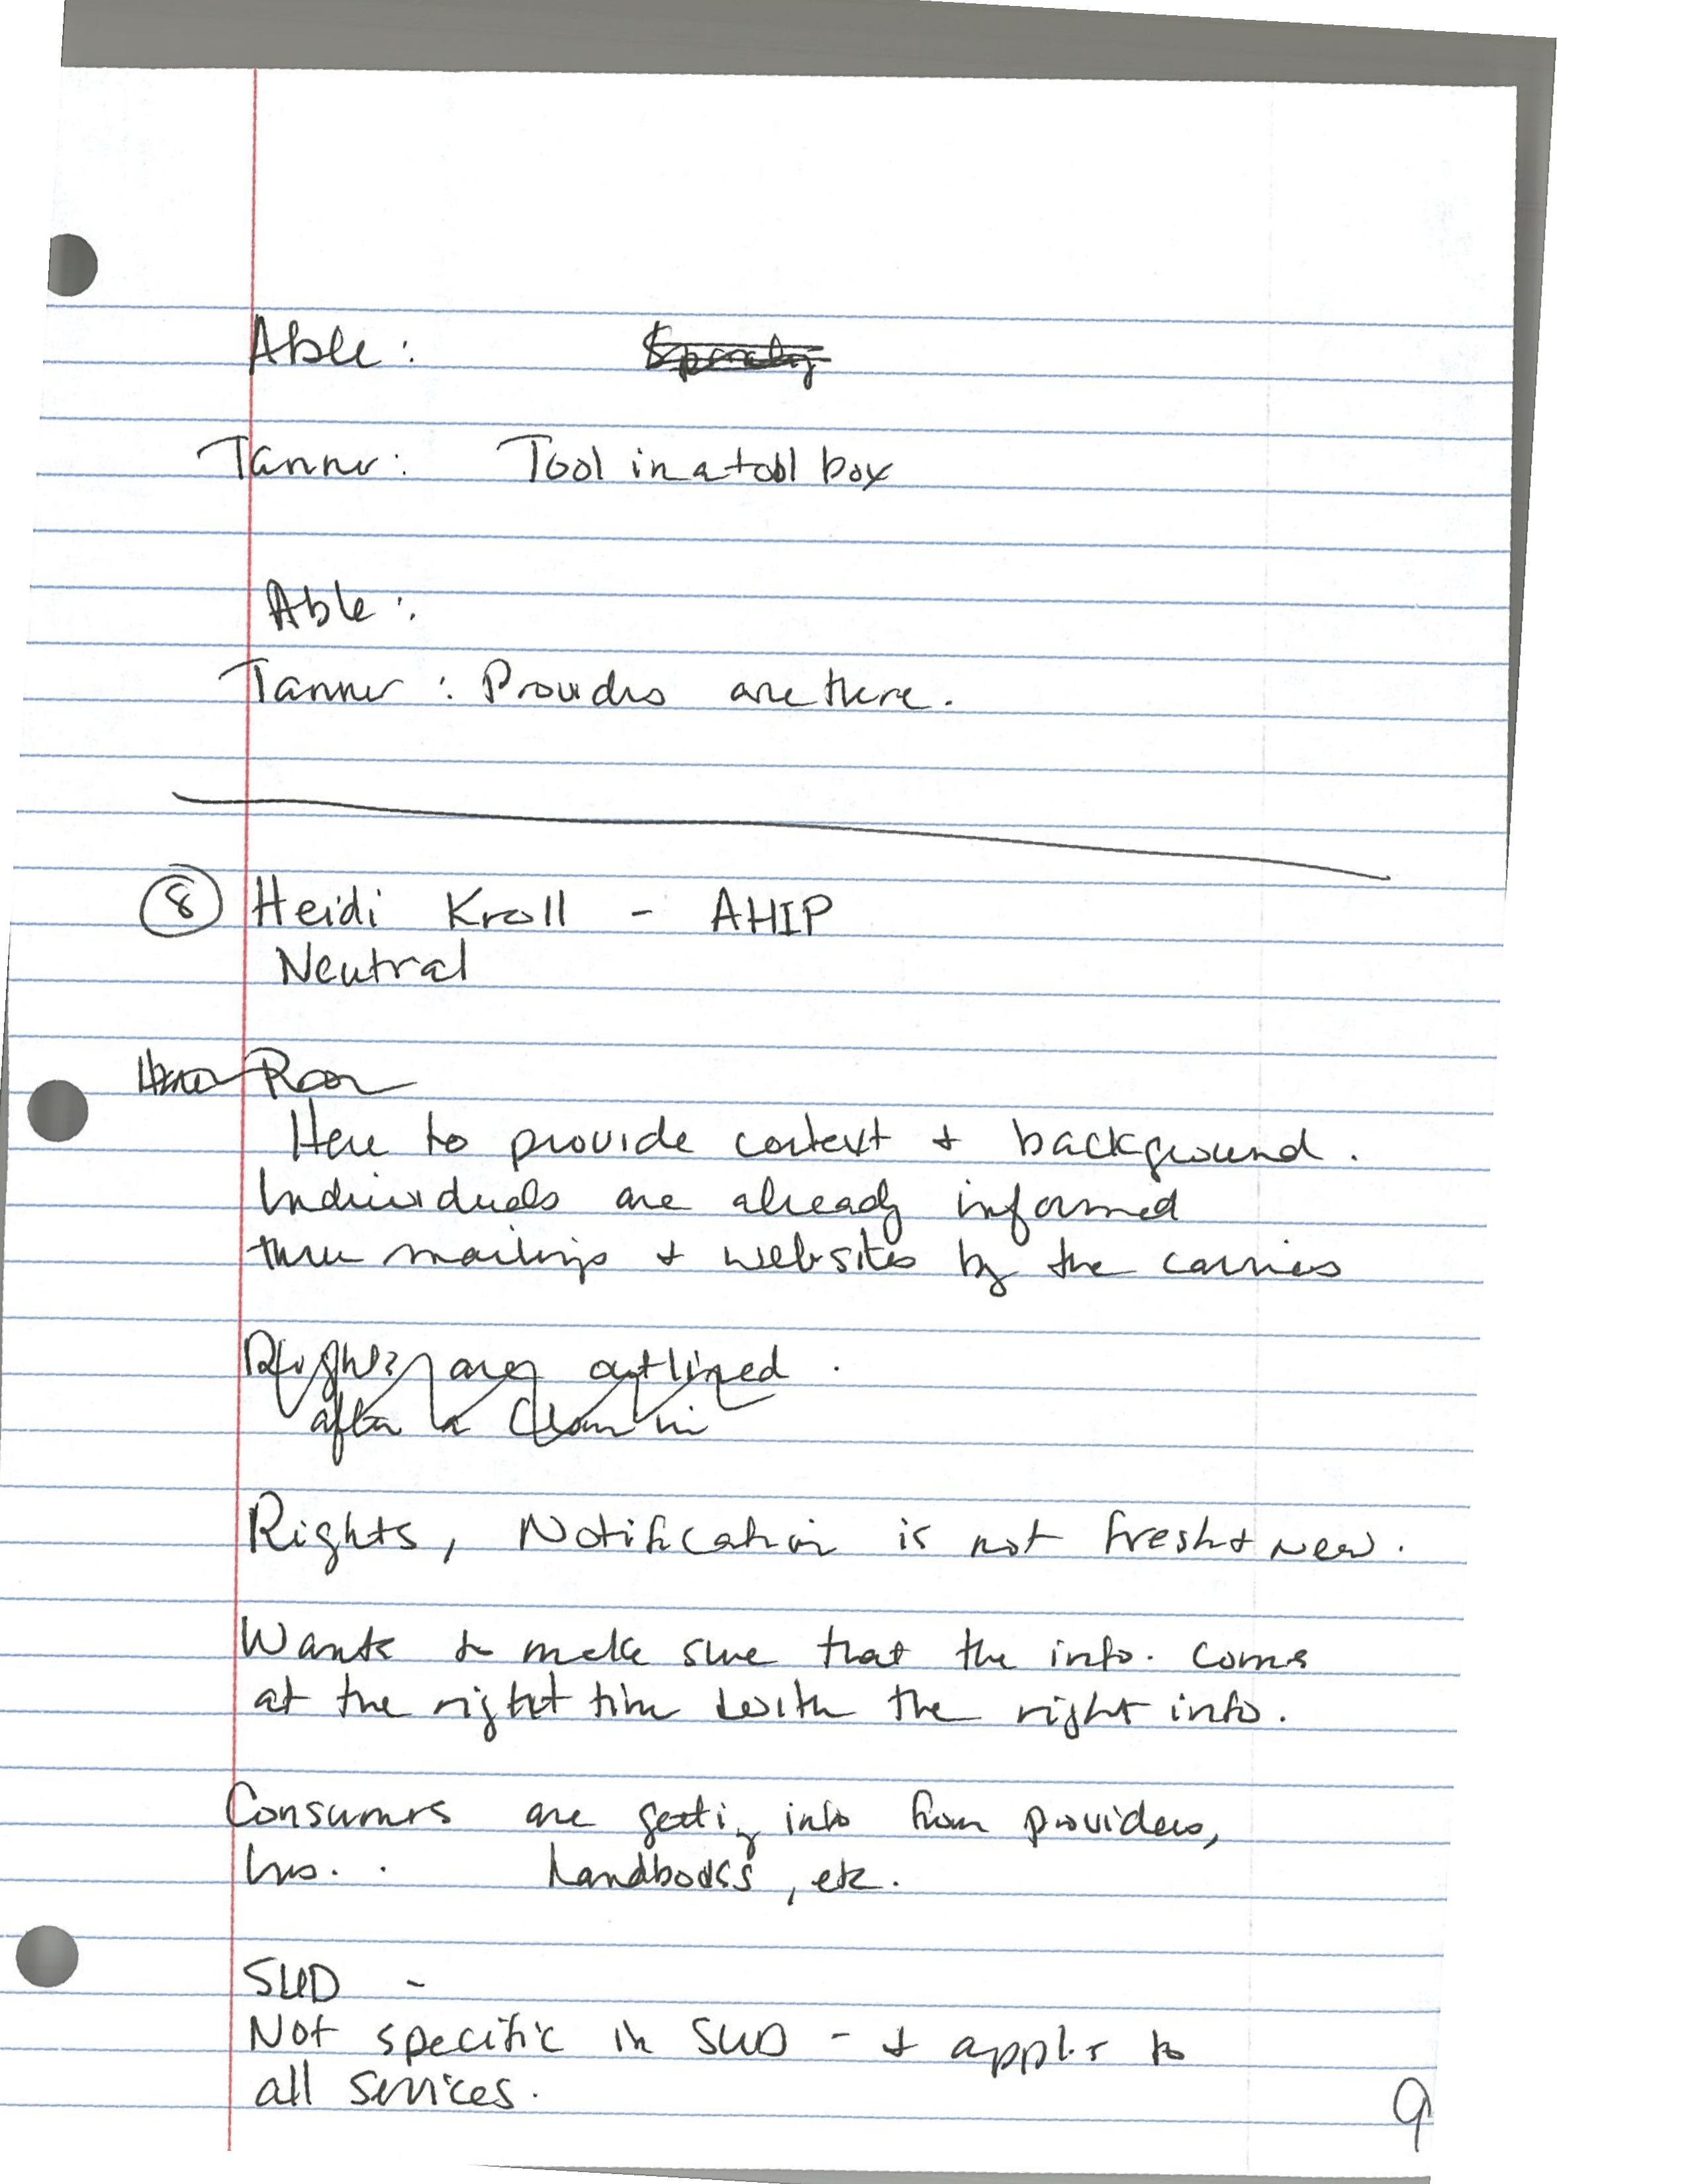 Able :
Tanner : Tool in a tool box
Able :
Tanner : Providers are there.
8 Heidi Kroll - AHIP
Neutral
Here to provide context + background.
Individuals are already informed
thru mailings + websites by the carriers
Rights are outlined .
after a
Rights, Notification is not fresh + new.
Wants to make sure that the info. comes
at the right time with the right info.
Consumers are getting info from providers,
ins. . handbooks, etc.
SUD -
Not specific in SUD - + applies to
all services.
9